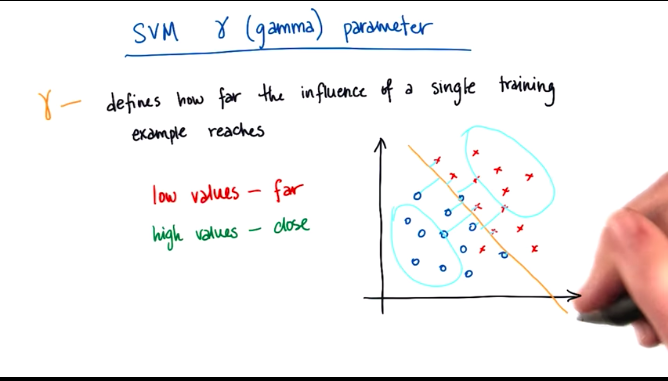 SVM γ (gamma) parameter
γ — defines how far the influence of a single training
example reaches
low values – far
high values – close